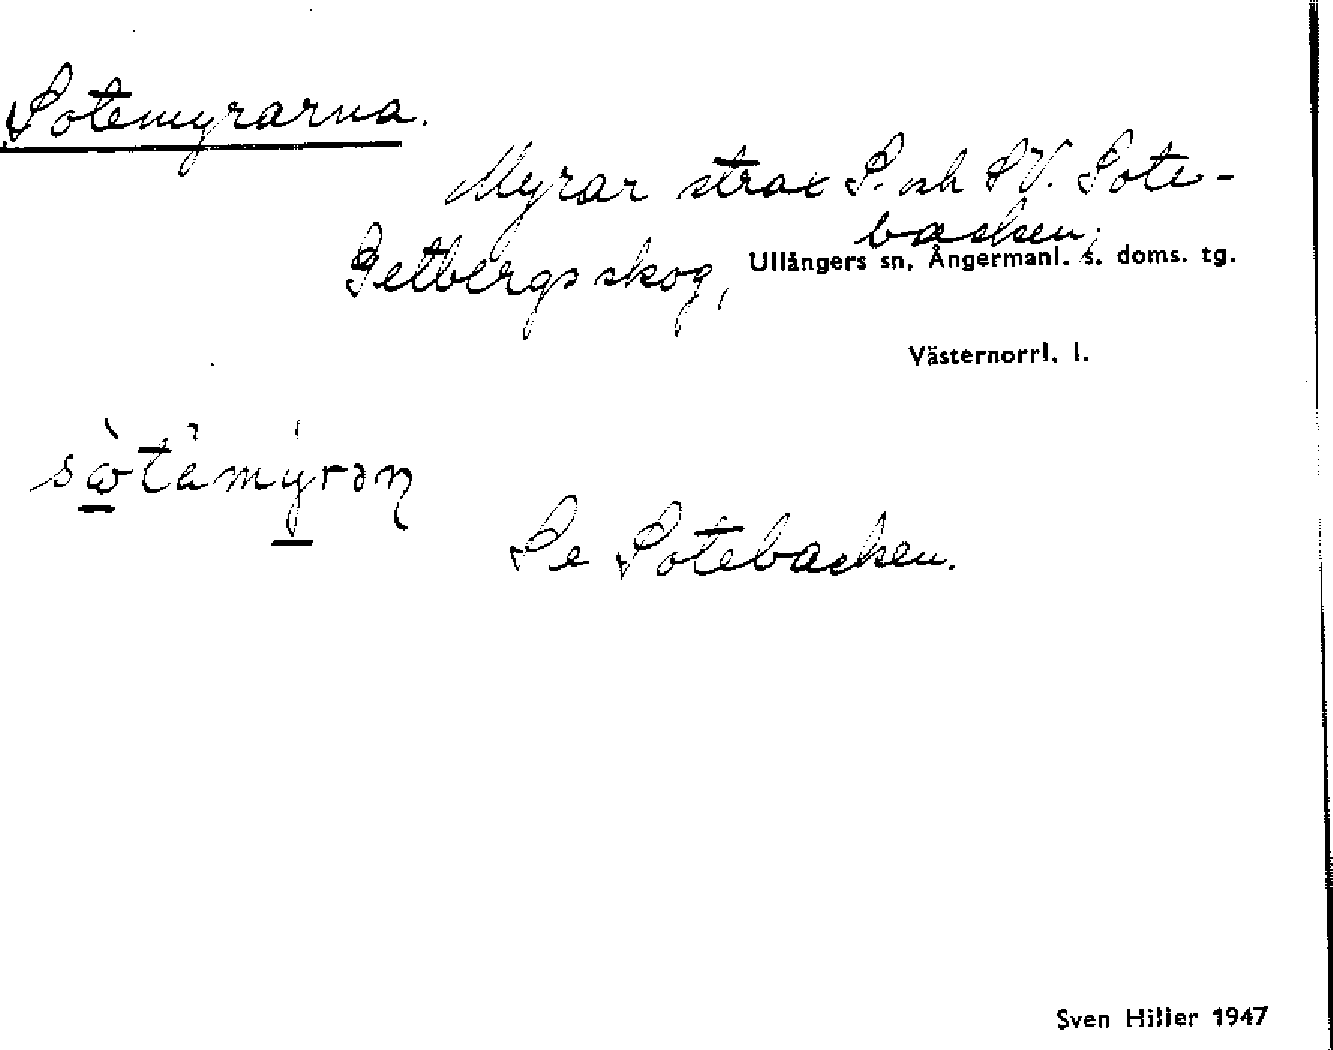 Sotemyrarna.
Myrar strax S. och SV. Sote-
backen,
Getbergsskog, Ullångers sn, Ångermanl. s. doms. tg.
Västernorrl. l.
sòtamýrən
Se Sotebacken.
Sven Hiller 1947